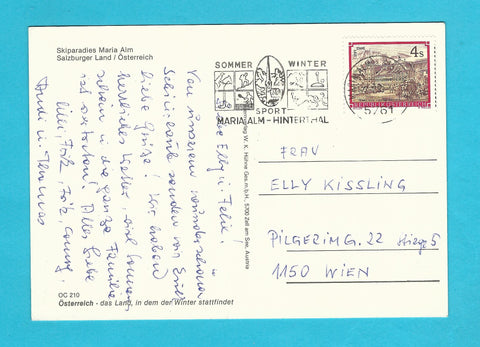 Skiparadies Maria Alm
Salzburger Land / Österreich
SOMMER WINTER
SPORT
MARIA ALM - HINTERTHAL
4s
REPUBLIK ÖSTERREICH
5761
Liebe Elly u. Felix!
Von unserem wunderschönen
Schiurlaub senden wir Euch
liebe Grüße! Wir haben
herrliches Wetter, viel Sonne
schon in die ganze Familie
Alles Liebe
Lilli Fritz, Fritz
Andi u. Thomas
FRAU
ELLY KISSLING
PILGERIMG. 22 Stiege 5
1150 WIEN
Verlag W. K. Höhne Ges.m.b.H., 5700 Zell am See, Austria
OC 210
Österreich - das Land, in dem der Winter stattfindet